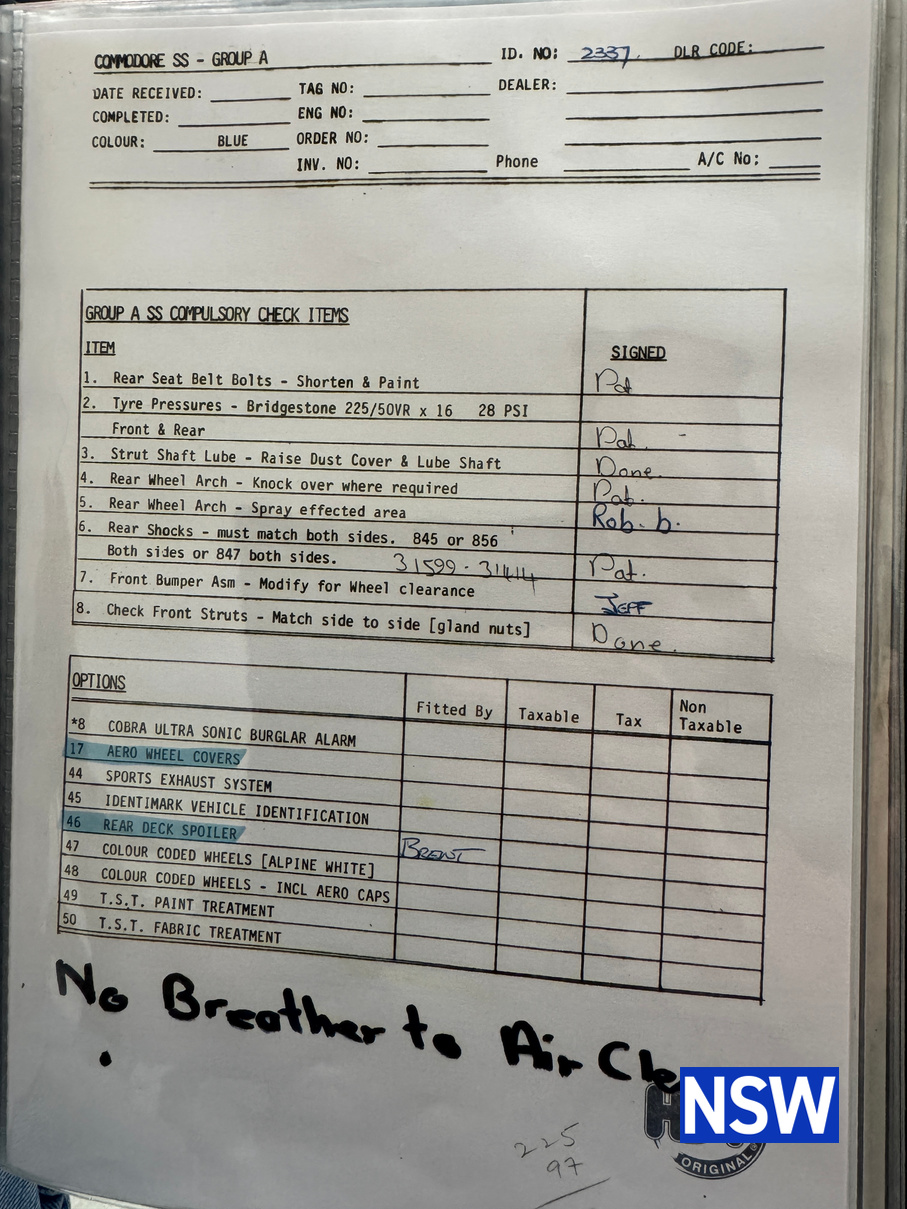 COMMODORE SS - GROUP A ID. NO: 2337. DLR CODE:
DATE RECEIVED: TAG NO: DEALER:
COMPLETED: ENG NO:
COLOUR: BLUE ORDER NO:
INV. NO: Phone A/C No:
GROUP A SS COMPULSORY CHECK ITEMS
ITEM SIGNED
1. Rear Seat Belt Bolts - Shorten & Paint Pat
2. Tyre Pressures - Bridgestone 225/50VR x 16 28 PSI
Front & Rear Pat.
3. Strut Shaft Lube - Raise Dust Cover & Lube Shaft Done.
4. Rear Wheel Arch - Knock over where required Pat.
5. Rear Wheel Arch - Spray effected area Rob. b.
6. Rear Shocks - must match both sides. 845 or 856
Both sides or 847 both sides. 31599 - 31414 Pat.
7. Front Bumper Asm - Modify for Wheel clearance JEFF
8. Check Front Struts - Match side to side [gland nuts] Done.
OPTIONS Fitted By Taxable Tax Non Taxable
*8 COBRA ULTRA SONIC BURGLAR ALARM
17 AERO WHEEL COVERS
44 SPORTS EXHAUST SYSTEM
45 IDENTIMARK VEHICLE IDENTIFICATION
46 REAR DECK SPOILER BRENT
47 COLOUR CODED WHEELS [ALPINE WHITE]
48 COLOUR CODED WHEELS - INCL AERO CAPS
49 T.S.T. PAINT TREATMENT
50 T.S.T. FABRIC TREATMENT
No Breather to Air Cle
NSW
ORIGINAL
225
97